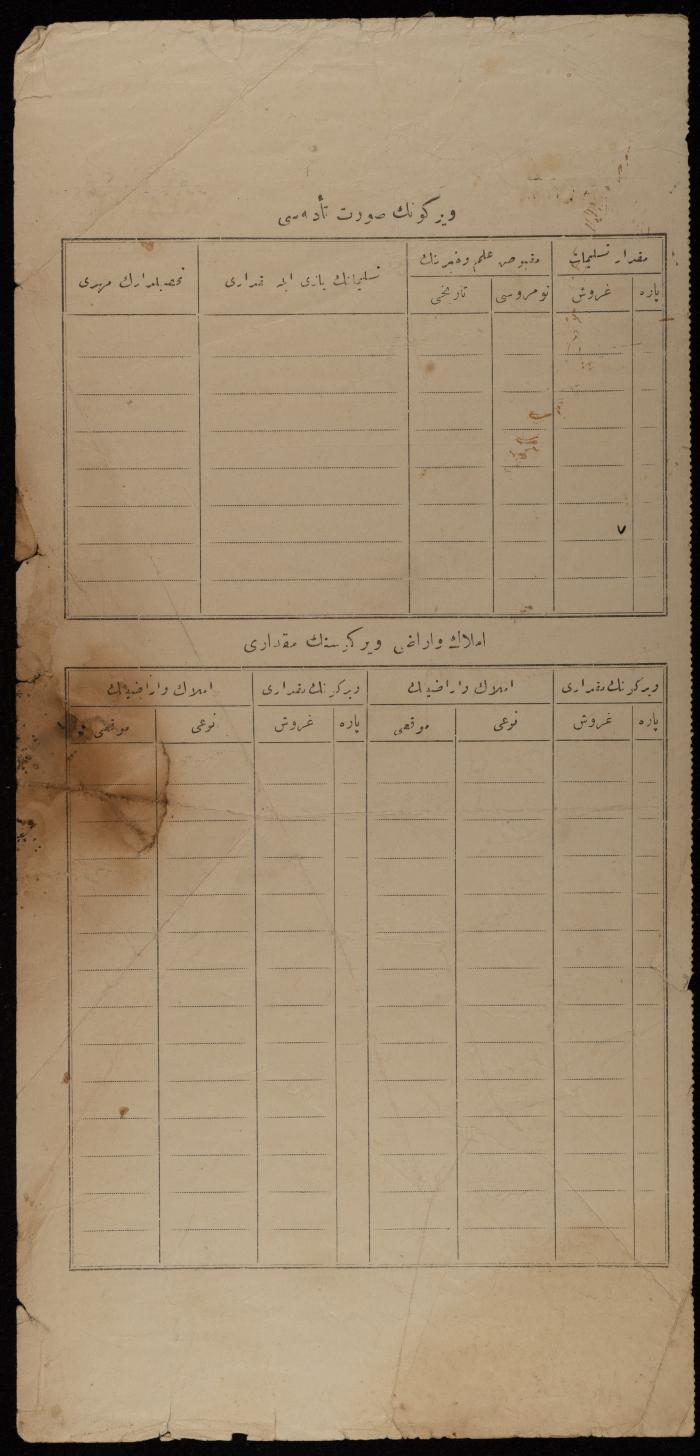 ویرکونك صورت تأدیه‌سی
مقدار تسلیمات
مقبوض علم وخبرینك
تسلیماتك یازی ایله مقداری
تحصیلدارك مهری
پاره
غروش
نومروسی
تاریخی
٧
املاك واراضی ویرکیسنك مقداری
ویرکینك مقداری
املاك واراضینك
ویرکینك مقداری
املاك واراضینك
پاره
غروش
نوعی
موقعی
پاره
غروش
نوعی
موقعی